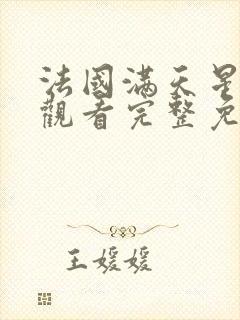 法國滿天星
觀看完整免
王媛媛